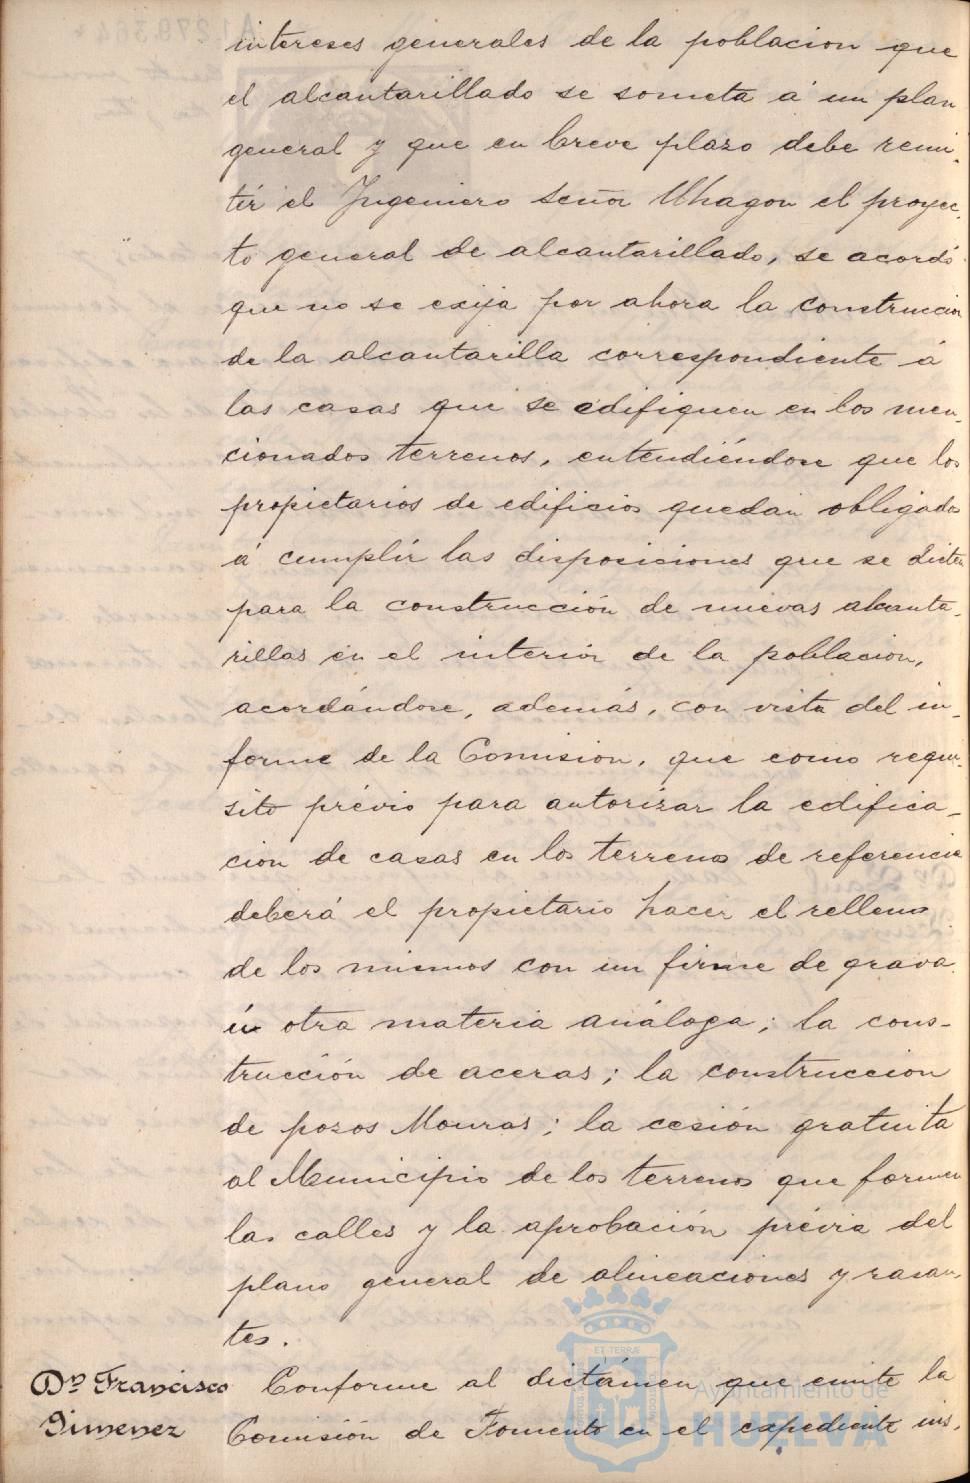 intereses generales de la poblacion que
el alcantarillado se someta á un plan
general y que en breve plazo debe remi-
tir el Ingeniero Señor Uhagon el proyec-
to general de alcantarillado, se acordó
que no se exija por ahora la construccion
de la alcantarilla correspondiente á
las casas que se edifiquen en los men-
cionados terrenos, entendiéndose que los
propietarios de edificios quedan obligados
á cumplir las disposiciones que se dicten
para la construcción de nuevas alcanta-
rillas en el interior de la poblacion,
acordándose, además, con vista del in-
forme de la Comision, que como requi-
sito prévio para autorizar la edifica-
cion de casas en los terrenos de referencia
deberá el propietario hacer el relleno
de los mismos con un firme de grava
ú otra materia análoga; la cons-
trucción de aceras; la construccion
de pozos Mouras; la cesión gratuita
al Municipio de los terrenos que formen
las calles y la aprobación prévia del
plano general de alineaciones y rasan-
tes.
Dn Francisco Conforme al dictámen que emite la
Gimenez Comisión de Fomento en el expediente ins-
Ayuntamiento de
HUELVA